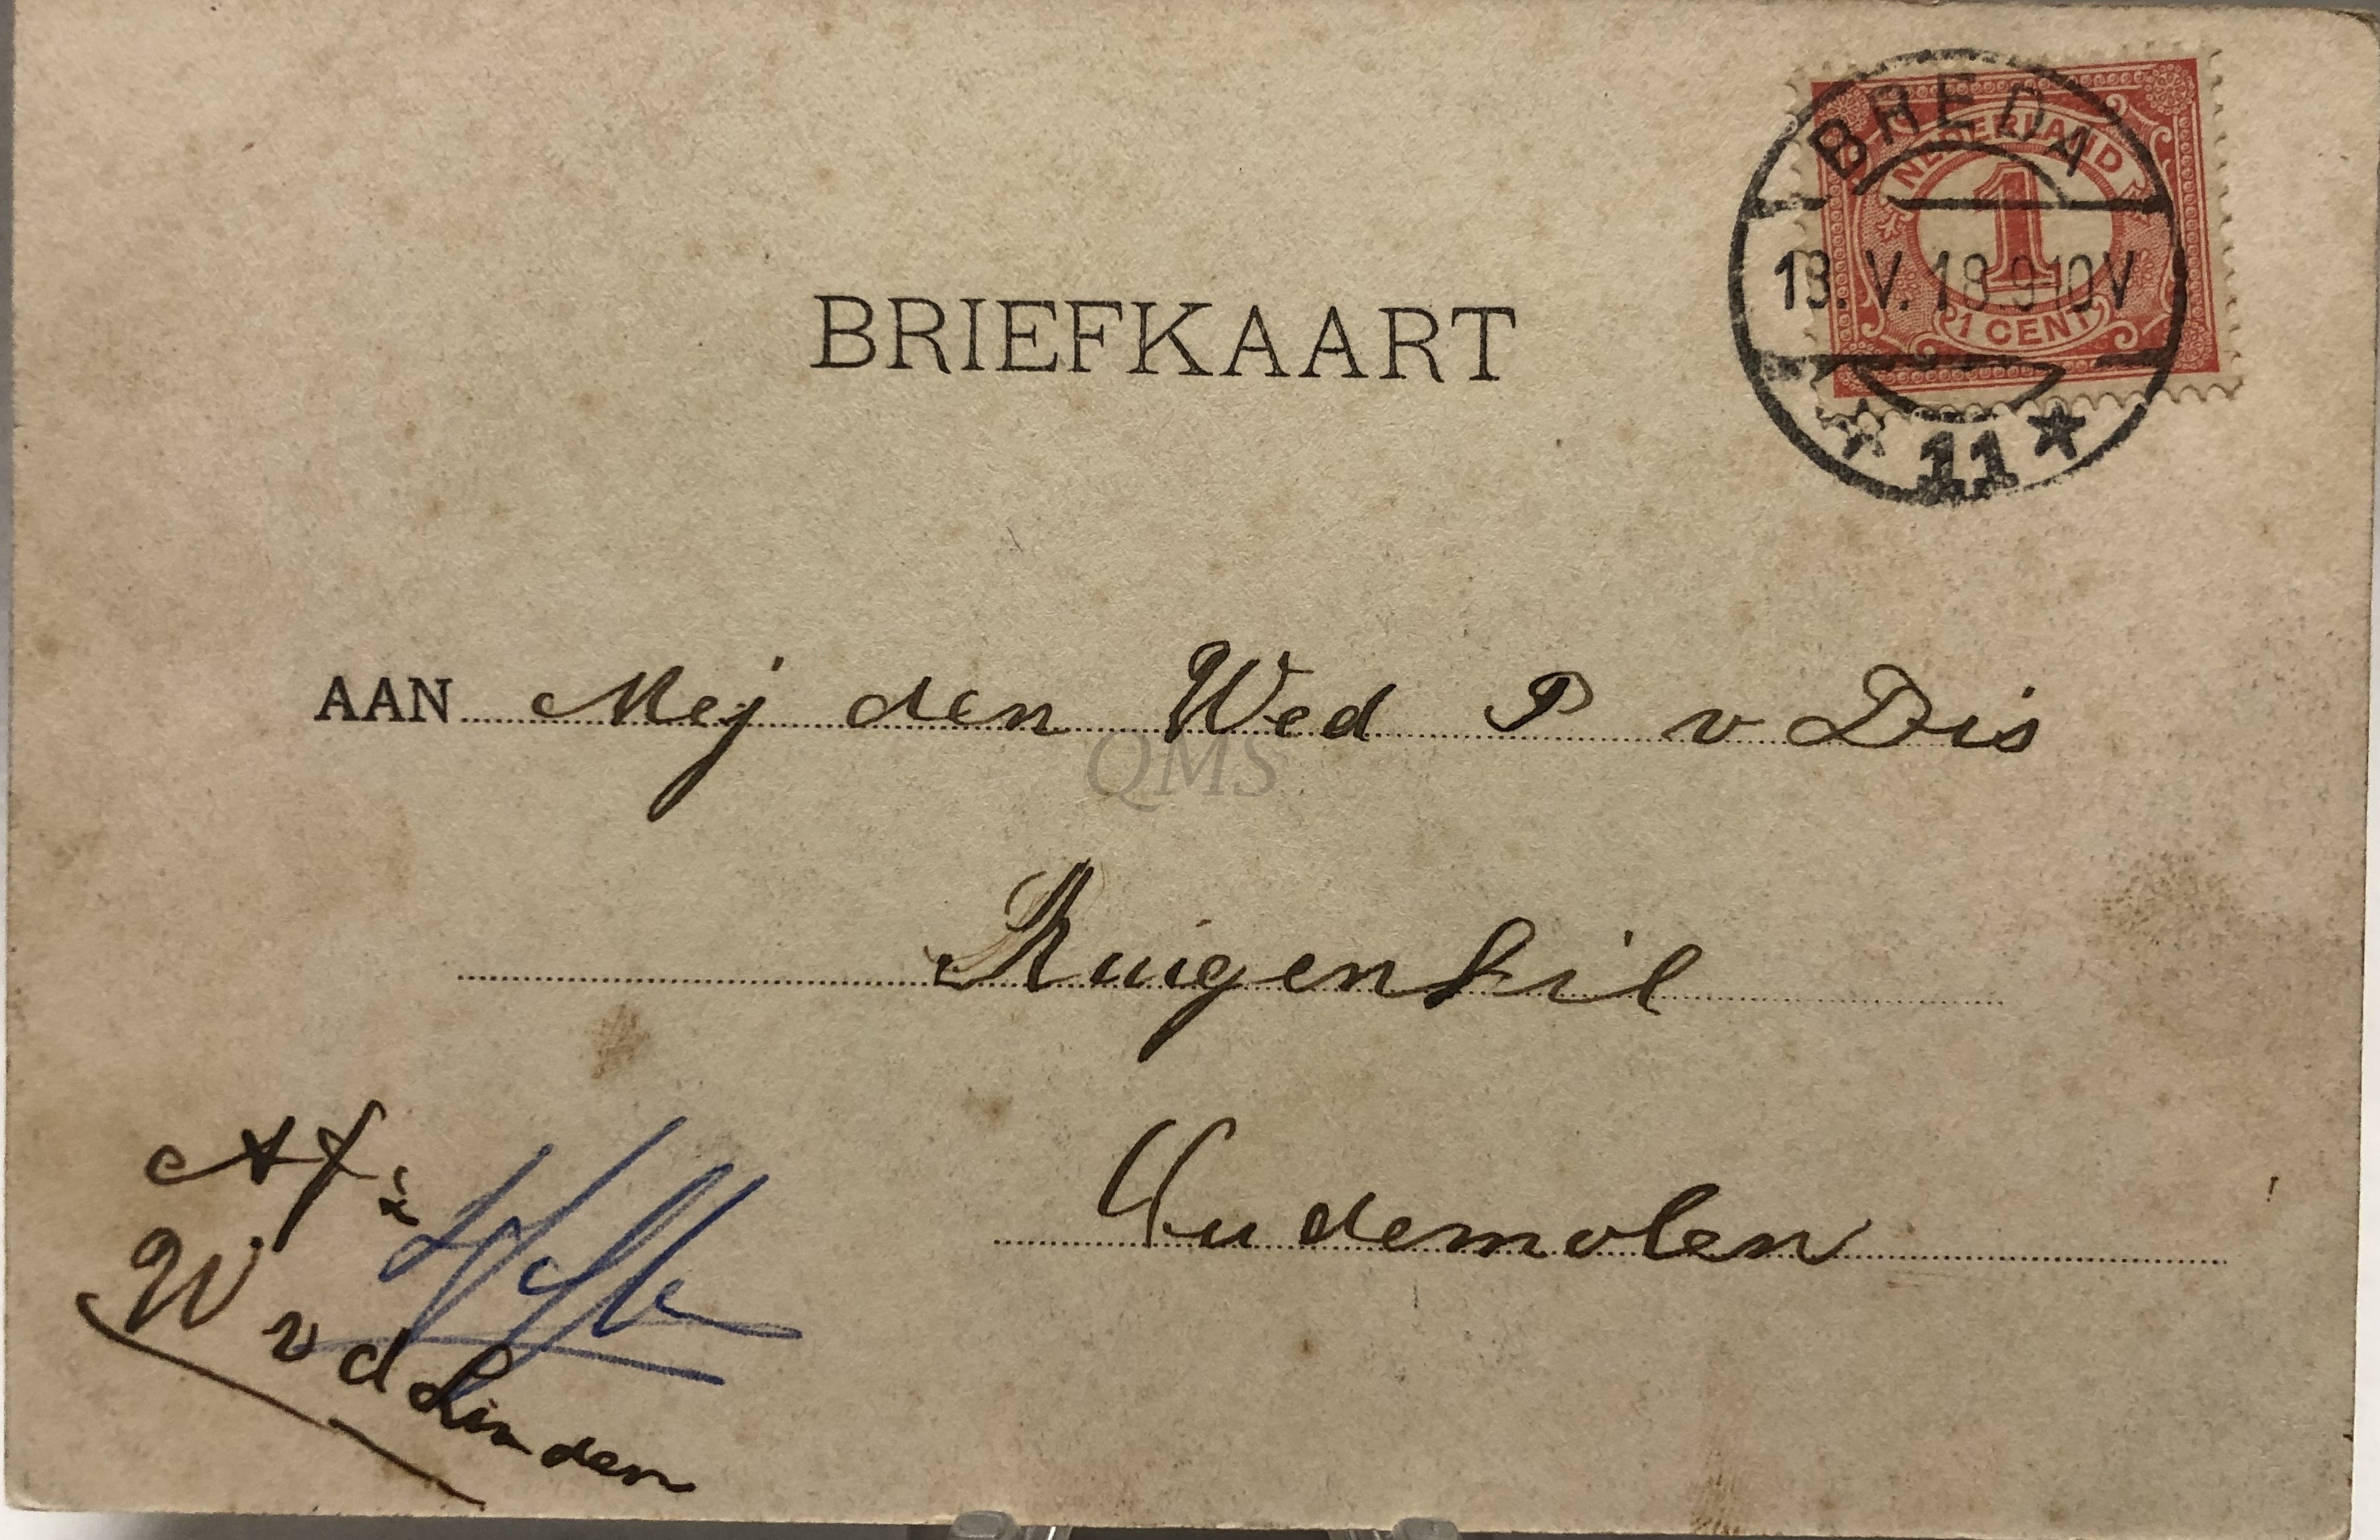 BREDA
NEDERLAND
1
13.V.18.9-10V
1 CENT
* 11 *
BRIEFKAART
AAN Mej den Wed P v Dis
QMS
Ruigenhil
Oudemolen
Af:
W v d Linden